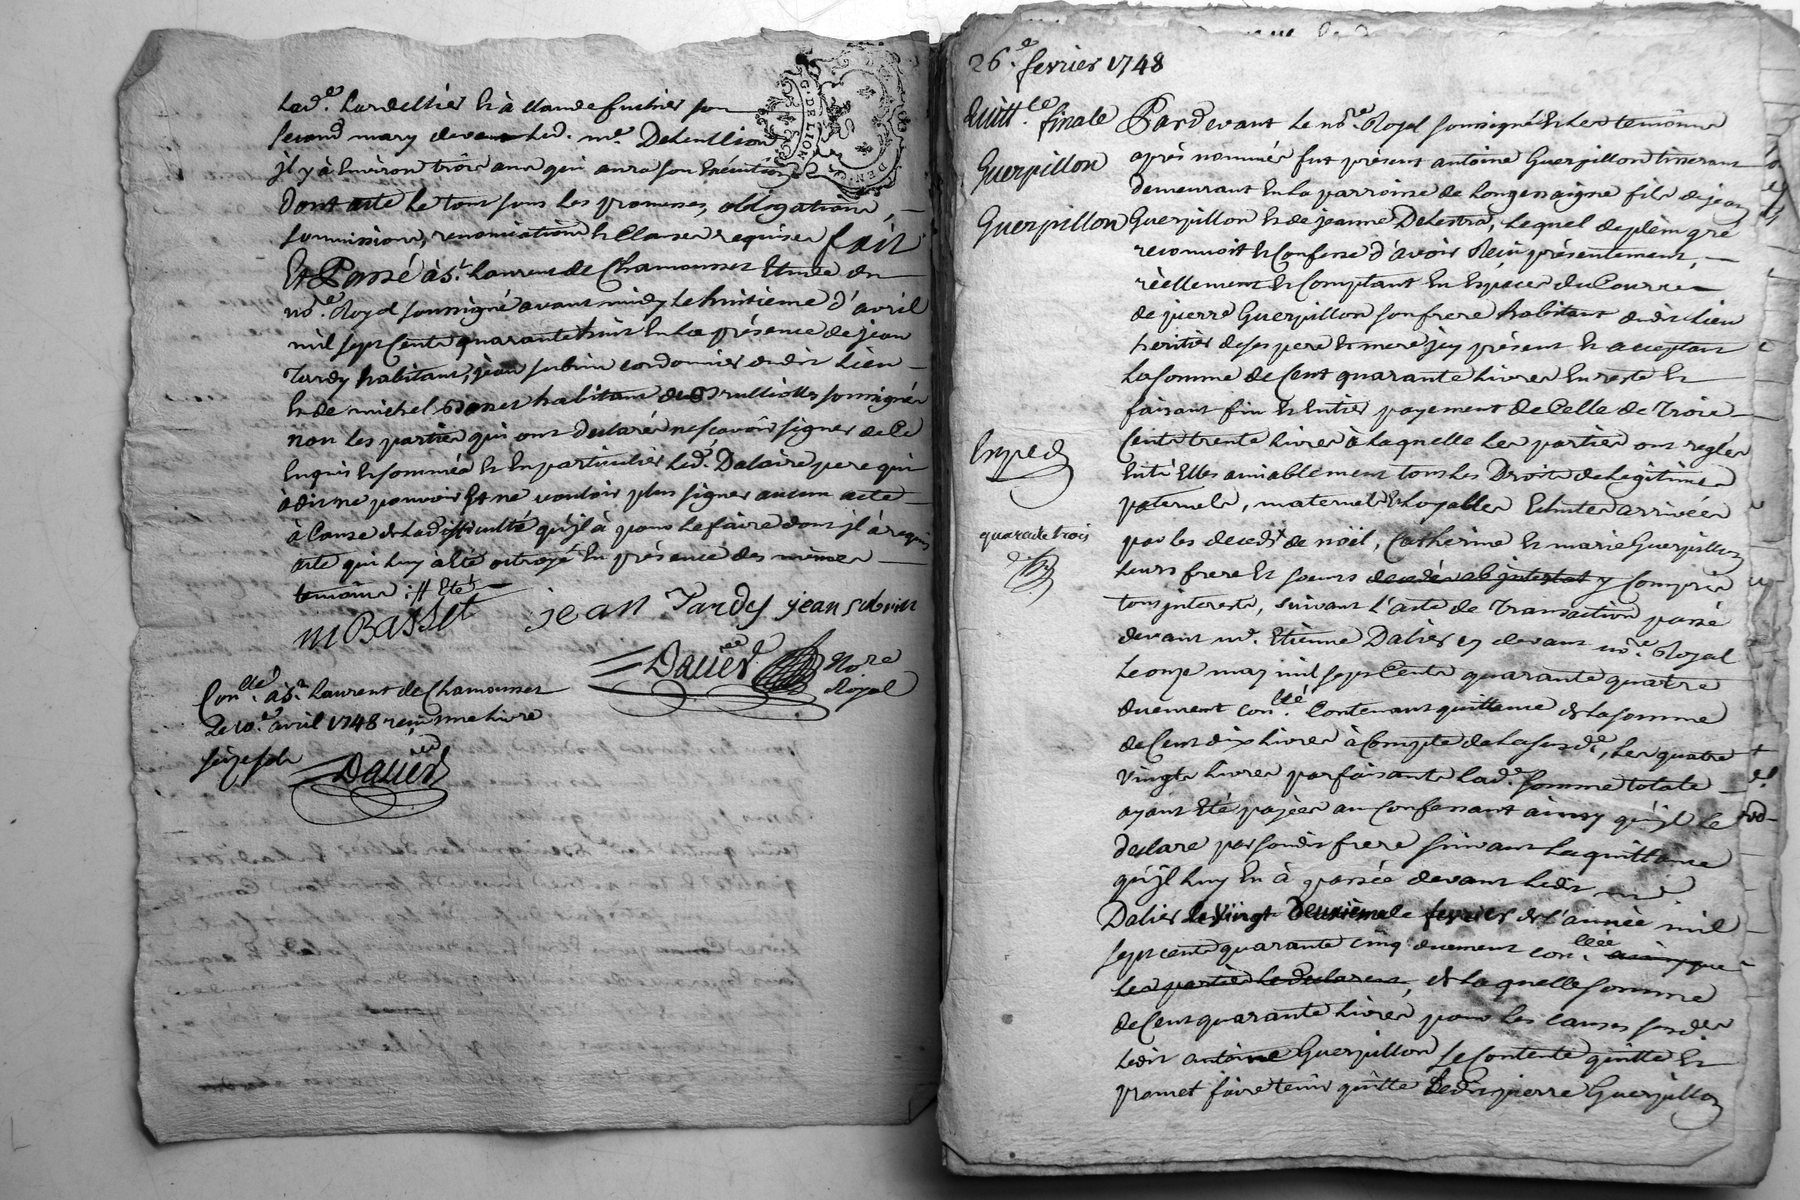 lad.e Lardellier et à Claude fustier son
second mary devant led. me. Delullion
jl y à Environ trois ans qui aura son Exécution
Dont acte le tout sous les promesses, obligations,
soumissions, renonciations et Clauses requises fait
Et Passé à St. Laurent de Chamousset Etude du
nore. Royal soussigné avant midy le huitième d'avril
mil sept Cents quarante huit En la présence de jean
Tardy habitant, jean subrin cordonnier dudit lieu
et de michel Basset habitant de Brullioles soussignés
non les parties qui ont Declarés ne sçavoir signer de Ce
Enquis et sommés et En particulier led. Dalaire pere qui
à dit ne pouvoir Et ne vouloir plus signer aucun acte
à Cause de la difficulté qu'jl à pour le faire dont jl à requis
acte qui luy à été octroyé En présence des mêmes
temoins
m BASSEt jean Tardy jean subrin
Dalier Nore
Royal
Conllé. à St. Laurent de Chamousset
Le 10.e avril 1748 reçu une livre
Dalier
G. DE LION
26.e fevrier 1748
Quittce. finale
Guerpillon
Guerpillon
Exped
quarante trois
Pardevant le nore. Royal soussigné et les temoins
après nommés fut présent antoine Guerpillon tisserant
demeurant En la parroisse de Longessaigne fils de jean
Guerpillon et de jeanne Delestra, lequel de plein gré
reconnoit et Confesse d'avoir Reçu présentement,
réellement et Comptant En Espèces du Cours
de pierre Guerpillon son frere habitant dudit lieu
heritier de ses pere et mere jcy présent et acceptant
la somme de Cent quarante livres En reste et
faisant fin et Entier payement de Celle de Trois
Cents trente livres à laquelle les parties ont reglés
Entr'Elles amiablement tous les Droits de legitimes
paternels, maternels et loyalles Echutes arrivées
par les decedz de nöel, Catherine et marie Guerpillon
leurs frere et soeurs decedés ab jntestat y Compris
tous jnterests, suivant l'acte de Transaction passé
devant me. Etienne Dalier cy devant nore. Royal
le onze may mil sept Cents quarante quatre
duement conllé. Contenant quittance de la somme
de Cent dix livres à Compte de la susde., les quatre
vingts livres parfaisants lade. somme totale
ayant été payées au Confessant ainsy qu'jl le
declare par sondit frere suivant la quittance
qu'jl luy En à passée devant ledit me.
Dalier le vingt Deuxième fevrier de l'année mil
sept cents quarante cinq duement conllée. ainsy que
les parties le declarent, de laquelle somme
de Cent quarante livres pour les causes susdes
ledit antoine Guerpillon se Contente quitte et
promet faire tenir quitte Ledit pierre Guerpillon